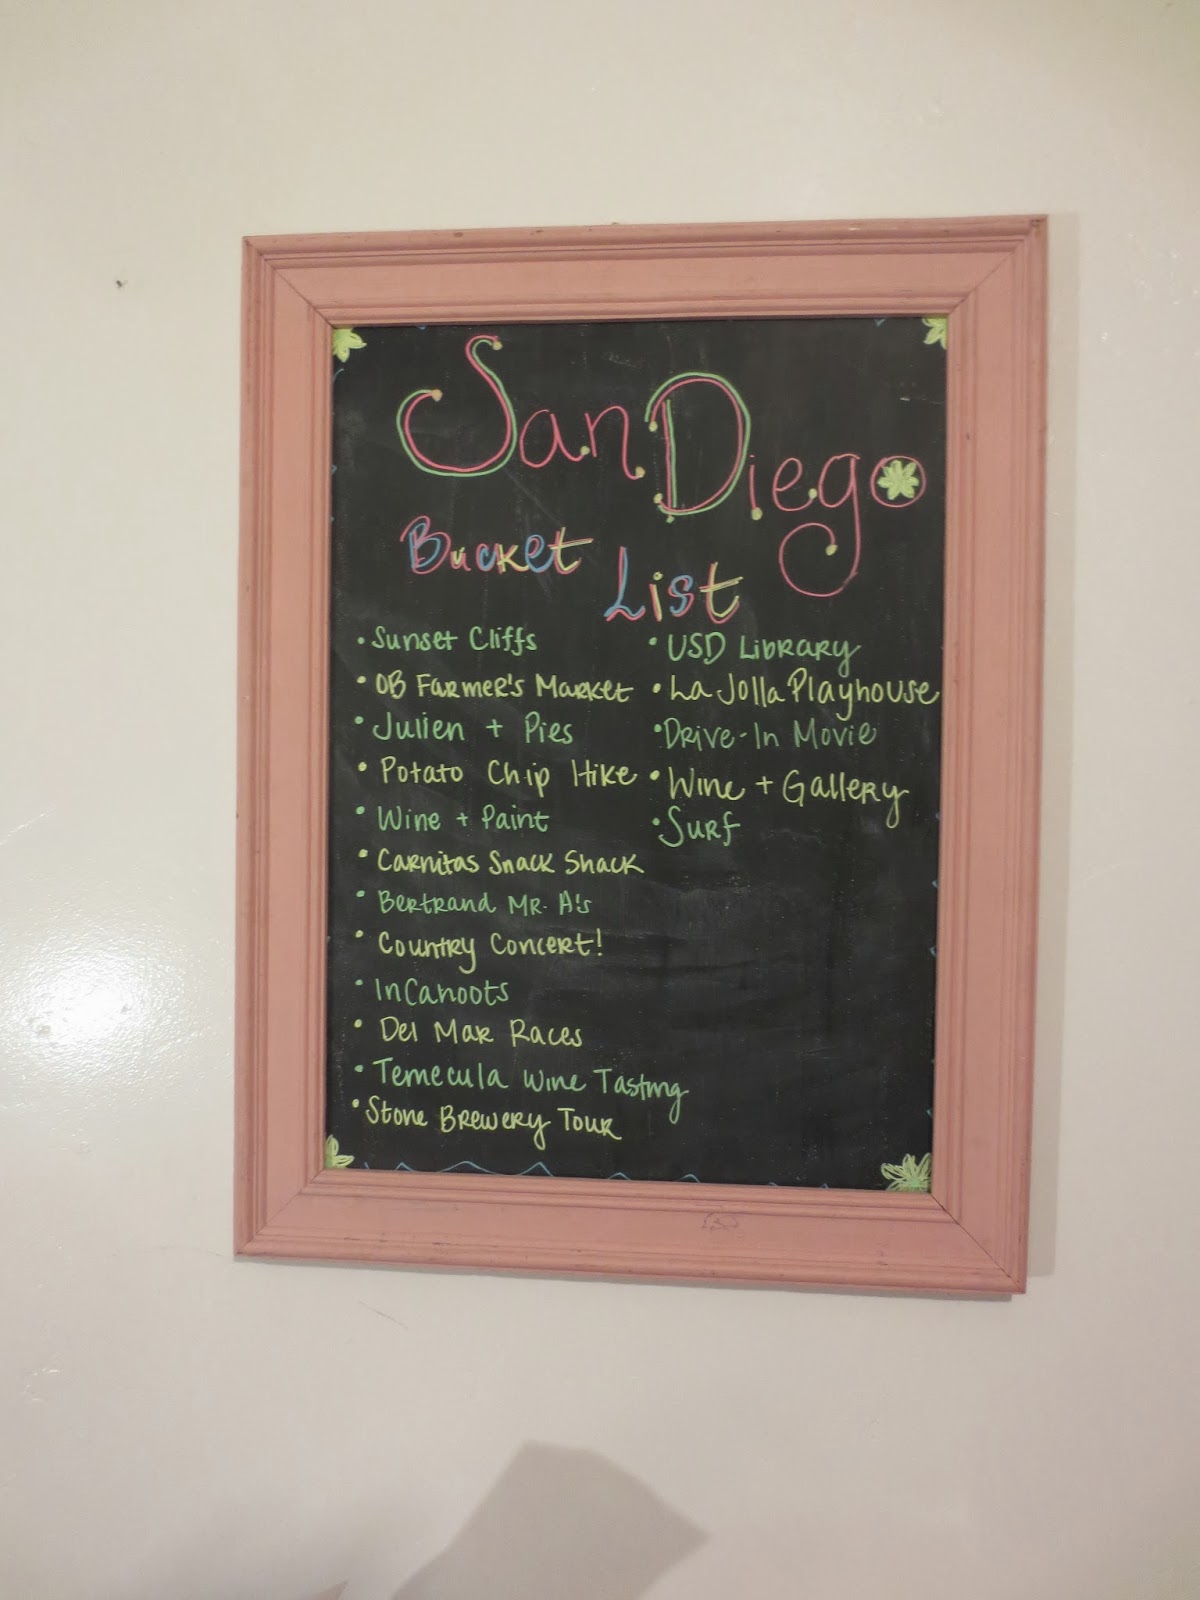 San Diego
Bucket List
• Sunset Cliffs
• OB Farmer's Market
• Julien + Pies
• Potato Chip Hike
• Wine + Paint
• Carnitas Snack Shack
• Bertrand Mr. A's
• Country Concert!
• InCahoots
• Del Mar Races
• Temecula Wine Tasting
• Stone Brewery Tour
• USD Library
• La Jolla Playhouse
• Drive-In Movie
• Wine + Gallery
• Surf